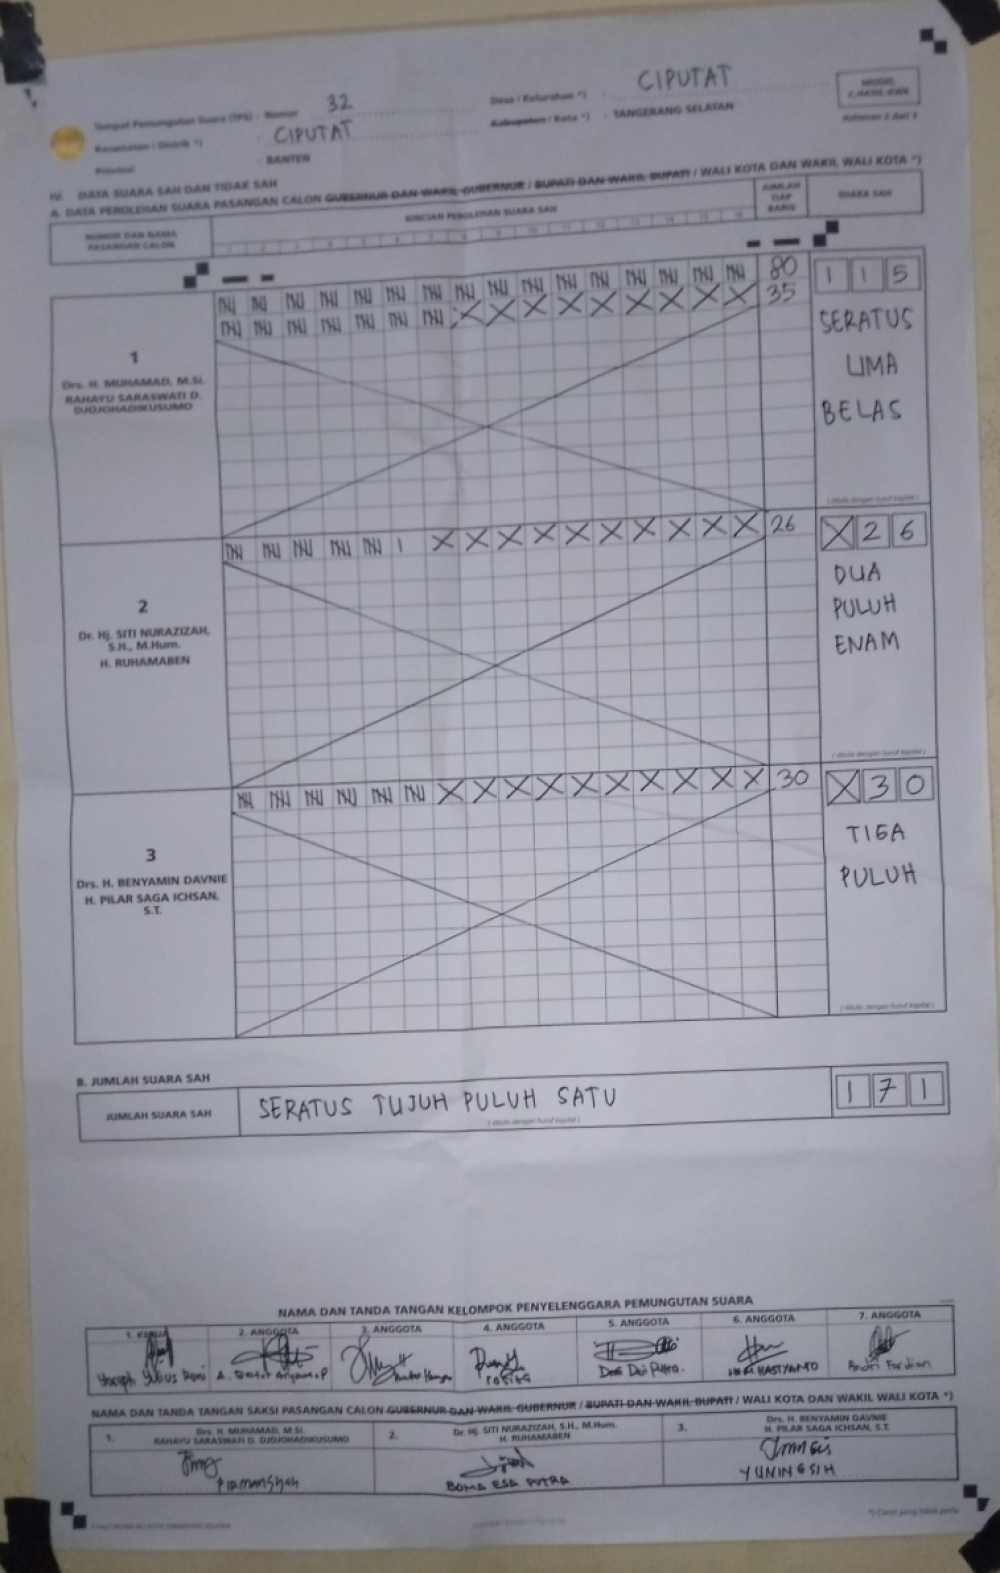 Tempat Pemungutan Suara (TPS) : Nomor 32
Desa / Kelurahan *) : CIPUTAT
Kecamatan / Distrik *) : CIPUTAT
Kabupaten / Kota *) : TANGERANG SELATAN
Provinsi : BANTEN
MODEL
C.HASIL-KWK
Halaman 2 dari 3
IV. DATA SUARA SAH DAN TIDAK SAH
A. DATA PEROLEHAN SUARA PASANGAN CALON GUBERNUR DAN WAKIL GUBERNUR / BUPATI DAN WAKIL BUPATI / WALI KOTA DAN WAKIL WALI KOTA *)
NOMOR DAN NAMA
PASANGAN CALON
RINCIAN PEROLEHAN SUARA SAH
JUMLAH
TIAP
BARIS
SUARA SAH
1 2 3 4 5 6 7 8 9 10 11 12 13 14 15 16
1
Drs. H. MUHAMAD, M.Si.
RAHAYU SARASWATI D.
DJOJOHADIKUSUMO
80
35
1 1 5
SERATUS
LIMA
BELAS
( ditulis dengan huruf kapital )
2
Dr. Hj. SITI NURAZIZAH,
S.H., M.Hum.
H. RUHAMABEN
26
X 2 6
DUA
PULUH
ENAM
( ditulis dengan huruf kapital )
3
Drs. H. BENYAMIN DAVNIE
H. PILAR SAGA ICHSAN,
S.T.
30
X 3 0
TIGA
PULUH
( ditulis dengan huruf kapital )
B. JUMLAH SUARA SAH
JUMLAH SUARA SAH
SERATUS TUJUH PULUH SATU
( ditulis dengan huruf kapital )
1 7 1
NAMA DAN TANDA TANGAN KELOMPOK PENYELENGGARA PEMUNGUTAN SUARA
1. KETUA
2. ANGGOTA
3. ANGGOTA
4. ANGGOTA
5. ANGGOTA
6. ANGGOTA
7. ANGGOTA
Yoseph
rosita
Putra
HASTYANTO
Andri Fardian
NAMA DAN TANDA TANGAN SAKSI PASANGAN CALON GUBERNUR DAN WAKIL GUBERNUR / BUPATI DAN WAKIL BUPATI / WALI KOTA DAN WAKIL WALI KOTA *)
1. Drs. H. MUHAMAD, M.Si.
RAHAYU SARASWATI D. DJOJOHADIKUSUMO
2. Dr. Hj. SITI NURAZIZAH, S.H., M.Hum.
H. RUHAMABEN
3. Drs. H. BENYAMIN DAVNIE
H. PILAR SAGA ICHSAN, S.T.
Firmansyah
BOMA ESA PUTRA
YUNINGSIH
*) Coret yang tidak perlu